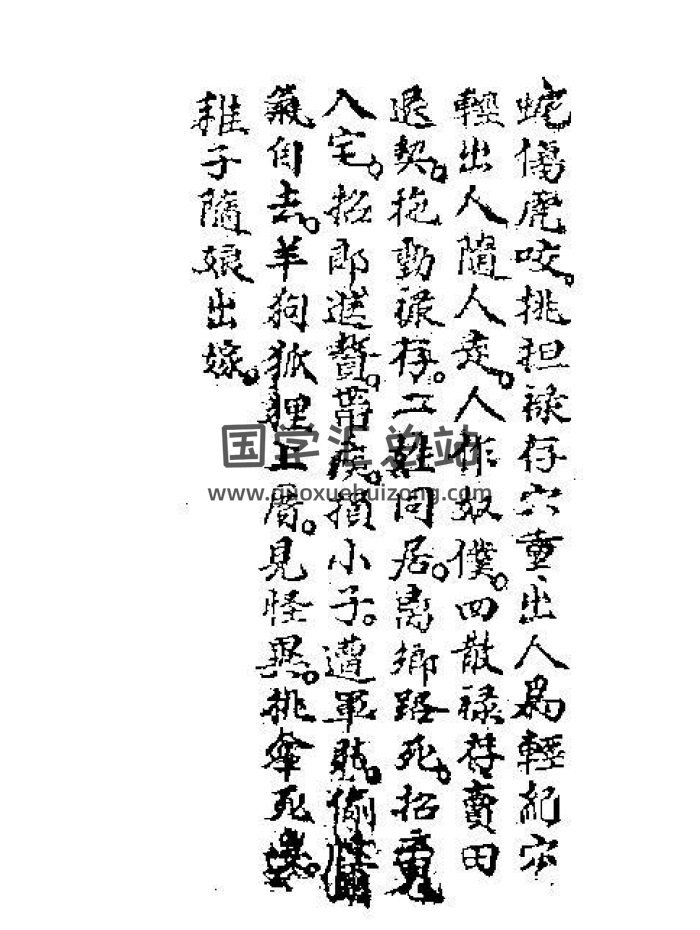 蛇傷虎咬。挑担祿存穴重出人為輕紀穴
輕出人隨人走。人作奴僕。四散祿存賣田
退契。拖動祿存。二姓同居。离鄉路死。招鬼
入宅。招郎進贅。帶疾。損小子。遭軍賊。偷
氣自去。羊狗狐狸上。見怪異。挑傘死
稚子隨娘出嫁。
国学汇总站
www.guoxuehuizong.com